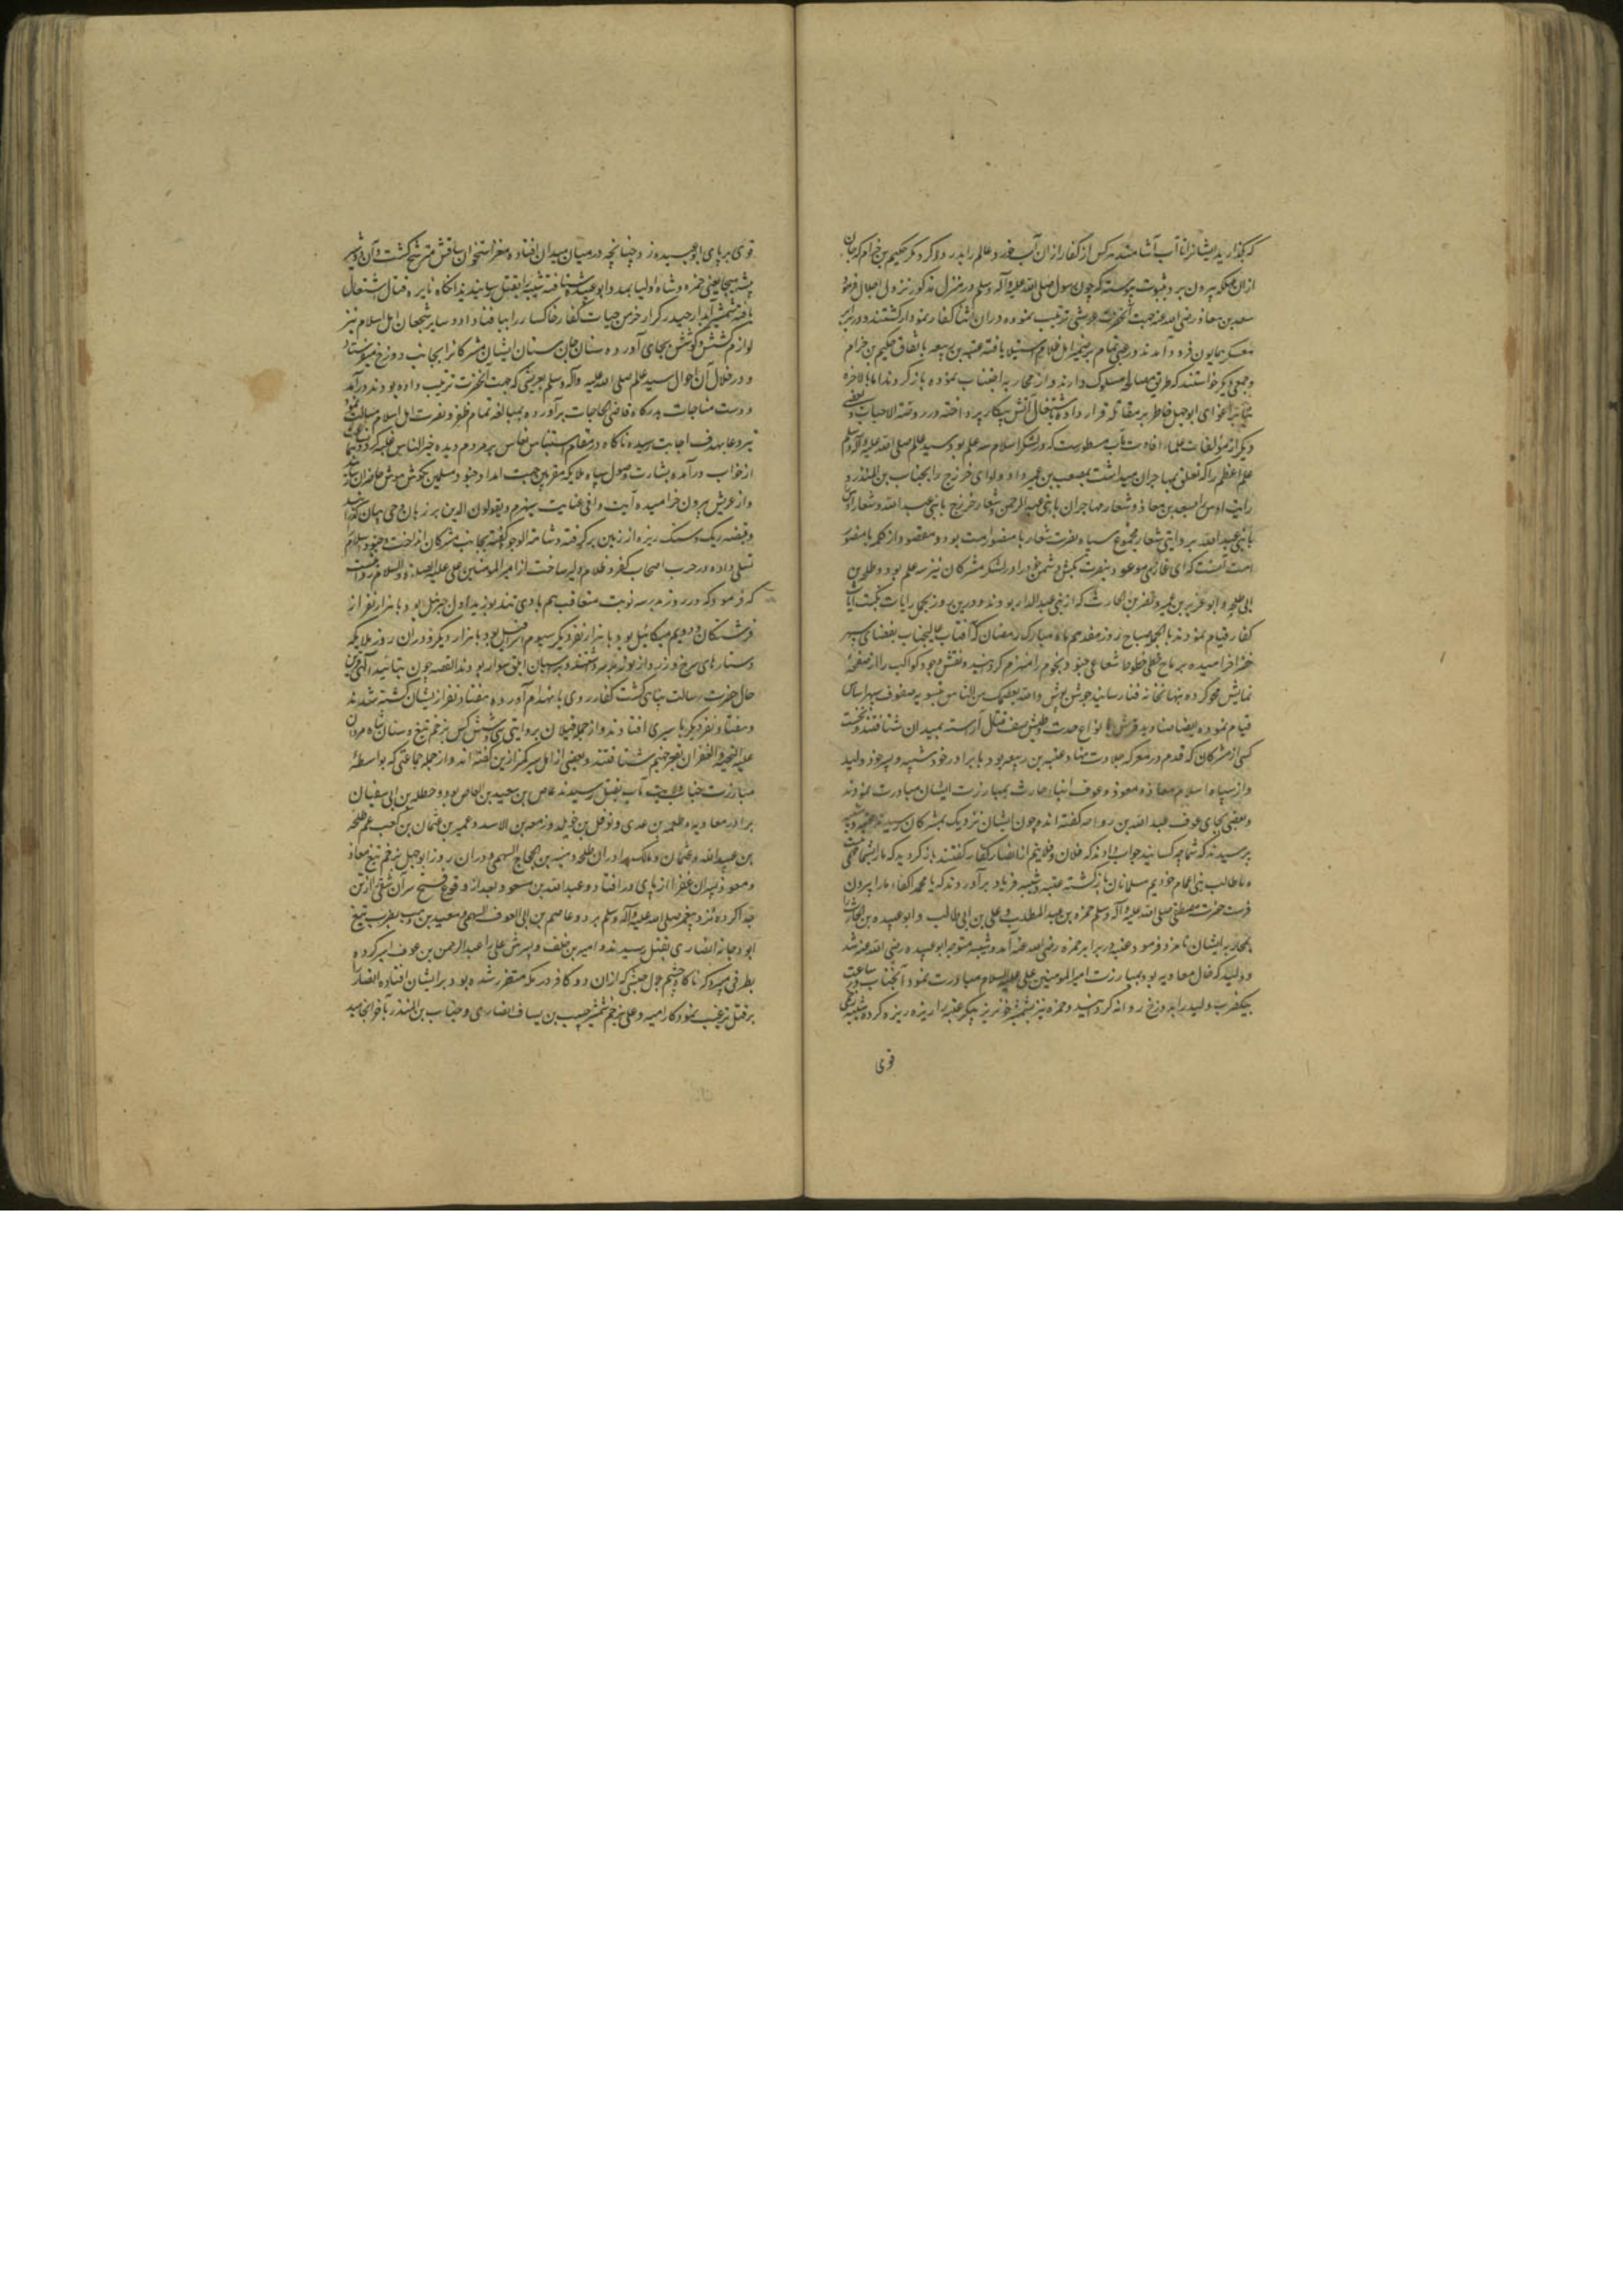 که بگذارید ایشانرا تا آب آشامند هر کس از کفار ازان آب خورد عالم را بدرود کرد مگر حکیم بن حزام که جان
ازان معرکه بیرون برد بثبوت پیوسته که چون رسول صلی الله علیه وآله وسلم در منزل مذکور نزول اجلال فرمود
سعد بن معاذ رضی الله عنه جهت آنحضرت عریشی ترتیب نموده دران اثنا کفار نمودار گشتند و در برابر
معسکر همایون فرود آمدند و رعبی تمام بر ضمیر اهل ظلام استیلا یافته عتبه بن ربیعه باتفاق حکیم بن حزام
وجمعی دیگر خواستند که طریق مصالحه مسلوک دارند و از محاربه اجتناب نموده بازگردند اما بالاخره
بنابر اغوای ابوجهل خاطر بر مقاتله قرار داده باشتعال آتش پیکار پرداختند در روضة الاحباب و بعضی
دیگر از مؤلفات علماء افادت مآب مسطورست که در لشکر اسلام سه علم بود سید عالم صلی الله علیه وآله وسلم
علم اعظم را که تعلق بمهاجران میداشت بمصعب بن عمیر داد و لوای خزرج را بحباب بن المنذر و
رایت اوس را بسعد بن معاذ و شعار مهاجران یا بنی عبد الرحمن و شعار خزرج یا بنی عبد الله و شعار اوس
یا بنی عبید الله بروایتی شعار مجموع سپاه نصرت شعار یا منصور امت بود و مقصود از کلمه یا منصور
امت آنست که ای غازی موعود بنصرت بکش دشمن خود را و در لشکر مشرکان نیز سه علم بود و طلحه بن
ابی طلحه و ابو عزیر بن عمیر و نضر بن الحارث که از بنی عبد الدار بودند و درین روز بحمل رایات نکبت آیات
کفار قیام نمودند بالجمله صباح روز هفدهم ماه مبارک رمضان که آفتاب عالیجناب بفضای سپهر
خضرا خرامیده برماح خطی خطوط شعاعی جنود نجوم را منهزم گردانید و نقش وجود کواکب را از صفحهٔ
نمایش محو کرده بنهانخانه فنا رسانید جوشن پوش والله یعصمک من الناس بتسویه صفوف سپهر اساس
قیام نموده ایضا صنادید قریش با انواع حدت و طیش صف قتال آراسته بمیدان شتافتند و نخست
کسی از مشرکان که قدم در معرکه جلادت نهاد عتبه بن ربیعه بود با برادر خود شیبه و پسر خود ولید
و از سپاه اسلام معاذ و معوذ و عوف ابناء حارث بمبارزت ایشان مبادرت نمودند
وبعضی بجای عوف عبد الله بن رواحه گفته اند و چون ایشان نزدیک بمشرکان رسیدند عتبه و شیبه
پرسیدند که شما چه کسانید جواب دادند که فلان و فلانیم از انصار کفار گفتند بازگردید که ما را بشما حاجتی
ما طالب بنی اعمام خودیم مسلمانان بازگشته عتبه و شیبه فریاد برآوردند که یا محمد اکفاء ما را بیرون
فرست حضرت مصطفی صلی الله علیه وآله وسلم حمزه بن عبد المطلب و علی بن ابی طالب و ابوعبیده بن الحارث را
بمحاربه ایشان نامزد فرمود عتبه در برابر حمزه رضی الله عنه آمد و شیبه متوجه ابوعبیده رضی الله عنه شد
و ولید که خال معاویه بود بمبارزت امیر المومنین علی علیه السلام مبادرت نمود آنجناب در ساعت
بیکضرب ولید را بدوزخ روانه گردانید و حمزه نیز بشمشیر خونریز پیکر عتبه را ریزه ریزه کرده شیبه زخمی
قوی
قوی بر پای ابوعبیده زد چنانچه در میان میدان افتاده مغز استخوان ساقش مترشح گشت و آن دو شیر
بیشه هیجا یعنی حمزه و شاه اولیا بمدد ابوعبیده شتافته شیبه را بقتل رسانیدند آنگاه نایره قتال اشتعال
یافته شمشیر آبدار حیدر کرار خرمن حیات کفار خاکسار را بباد فنا داد و سایر شجعان اهل اسلام نیز
لوازم کشش و کوشش بجای آورده سنان جان ستان ایشان مشرکانرا بجانب دوزخ میفرستاد
و در خلال آن احوال سید عالم صلی الله علیه وآله وسلم بعریشی که جهت آنحضرت ترتیب داده بودند درآمد
و دست مناجات بدرگاه قاضی الحاجات برآورده بمبالغه تمام ظفر و نصرت اهل اسلام مسالت نمود
تیر دعا بهدف اجابت رسیده ناگاه در مقام استیناس نعاس بر مردم دیده خیر الناس غلبه کرد و بعد
از خواب درآمده بشارت وصول سپاه ملایکه مقربین جهت امداد جنود مسلمین بگوش هوش حاضران
و از عریش بیرون خرامیده آیت وافی عنایت سیهزم و یولون الدبر بر زبان وحی بیان گذرانید
و قبضه ریک و سنک ریزه از زمین برگرفته و شاهت الوجوه گفته بجانب مشرکان انداخت و جنود اسلام
تسلی داده در حرب اصحاب کفر و ظلام دلیر ساخت از امیر المومنین علی علیه الصلوة والسلام روایت
که فرمود که در روز بدر سه نوبت متعاقب هم بادی تند بوزید اول جبرئیل بود با هزار نفر از
فرشتگان و دویم میکائیل بود با هزار نفر دیگر سیوم اسرافیل بود با هزار دیگر و دران روز ملایکه
دستارهای سرخ و زرد از نور بر سر داشتند و بر اسبان ابلق سوار بودند القصه چون بتائید آلهی
حال حضرت رسالت پناهی گشت کفار روی بانهزام آورده هفتاد نفر از ایشان کشته شدند
و هفتاد نفر دیگر باسیری افتادند و از جمله قتیلان بروایتی سی و شش کس بزخم تیغ و سنان شاه مردان
علیه التحیة والغفران بقعر جهنم شتافتند و بعضی از اهل سیر کمتر ازین گفته اند و از جمله جماعتی که بواسطهٔ
مبارزت جناب ولایت مآب بقتل رسیدند عاص بن سعید بن العاص بود و حنظله بن ابی سفیان
برادر معاویه و طعیمه بن عدی و نوفل بن خویلد و زمعه بن الاسود و عمیر بن عثمان بن کعب عم طلحه
بن عبید الله و عثمان و مالک برادران طلحه و منبه بن الحجاج السهمی و دران روز ابوجهل بزخم تیغ معاذ
و معوذ پسران عفرا از پای درافتاد و عبد الله بن مسعود بعد از وقوع فتح سر آن شقی از تن
جدا کرده نزد پیغمبر صلی الله علیه وآله وسلم برد و عاصم بن ابی العوف السهمی و معبد بن وهب بضرب تیغ
ابو دجانه انصاری بقتل رسیدند و امیه بن خلف و پسرش علی را عبد الرحمن بن عوف اسیر کرده
بطرفی میبرد که ناگاه چشم بلال حبشی که ازان دو کافر در مکه متضرر شده بود بر ایشان افتاده انصار را
بر قتل ترغیب نمود کار امیه و علی بزخم شمشیر حبیب بن یساف انصاری و حباب بن المنذر بآخر انجامید